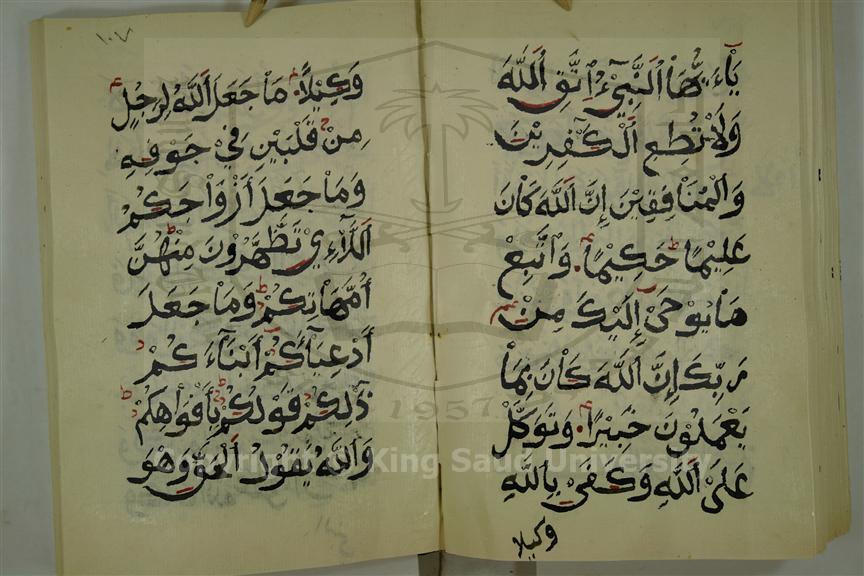 يَٰأَيُّهَا ٱلنَّبِيُّ ٱتَّقِ ٱللَّهَ
وَلَا تُطِعِ ٱلْكَٰفِرِينَ
وَالْمُنَافِقِينَ إِنَّ اللَّهَ كَانَ
عَلِيمًا حَكِيمًا وَٱتَّبِعْ
مَا يُوحَىٰ إِلَيْكَ مِنْ
رَبِّكَ إِنَّ ٱللَّهَ كَانَ بِمَا
يَعْمَلُونَ خَبِيرًا وَتَوَكَّلْ
عَلَىٰ ٱللَّهِ وَكَفَىٰ بِاللَّهِ
وكيلا
١٠٧
وَكِيلًا مَا جَعَلَ ٱللَّهُ لِرَجُلٍ
مِنْ قَلْبَيْنِ فِي جَوْفِهِ
وَمَا جَعَلَ أَزْوَاجَكُمْ
اَللَّآءِي تَظَّهَّرُونَ مِنْهُنَّ
أُمَّهَاتِكُمْ وَمَا جَعَلَ
أَدْعِيَآءَكُمْ أَبْنَآءَكُمْ
ذَٰلِكُمْ قَوْلُكُمْ بِأَفْوَاهِكُمْ
وَاللَّهُ يَقُولُ الْحَقَّ وَهُوَ
1957
Copyright © King Saud University